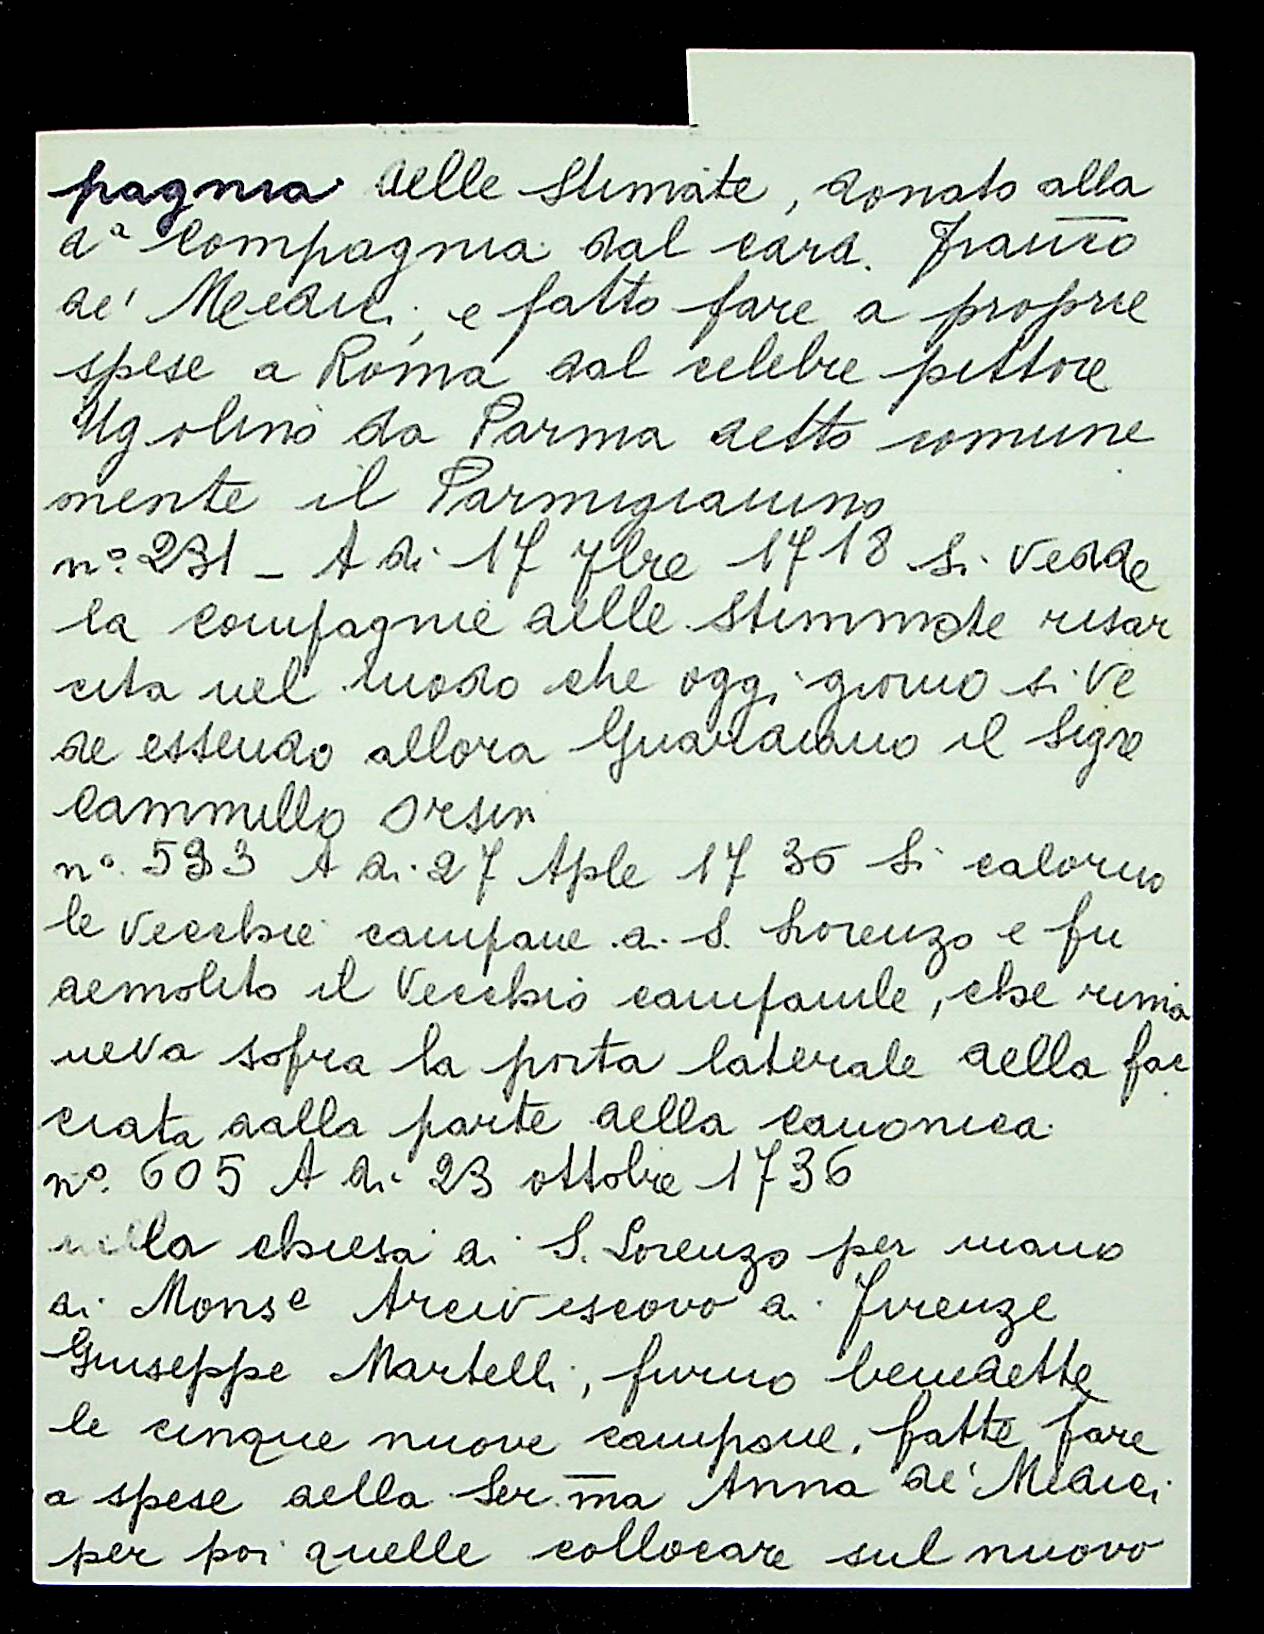 pagnia delle Stimate, donato alla
dª Compagnia dal card. Franco
de' Medici, e fatto fare a proprie
spese a Roma dal celebre pittore
Ugolino da Parma detto comune
mente il Parmigianino
nº. 231 - A di 17 7bre 1718 Si vedde
la compagnie delle Stimmate risar
cita nel modo che oggi giorno si ve
de essendo allora Guardiano il Sigre
Cammillo Orsin
nº. 533 A di 27 Aple 1736 Si calorno
le vecchie campane a S. Lorenzo e fu
demolito il Vecchio campanile, che rima
neva sopra la porta laterale della fac
ciata dalla parte della canonica
nº. 605 A di 23 ottobre 1736
nella chiesa di S. Lorenzo per mano
di Monse Arcivescovo di Firenze
Giuseppe Martelli, furno benedette
le cinque nuove campane, fatte fare
a spese della Ser.ma Anna de' Medici
per poi quelle collocare sul nuovo